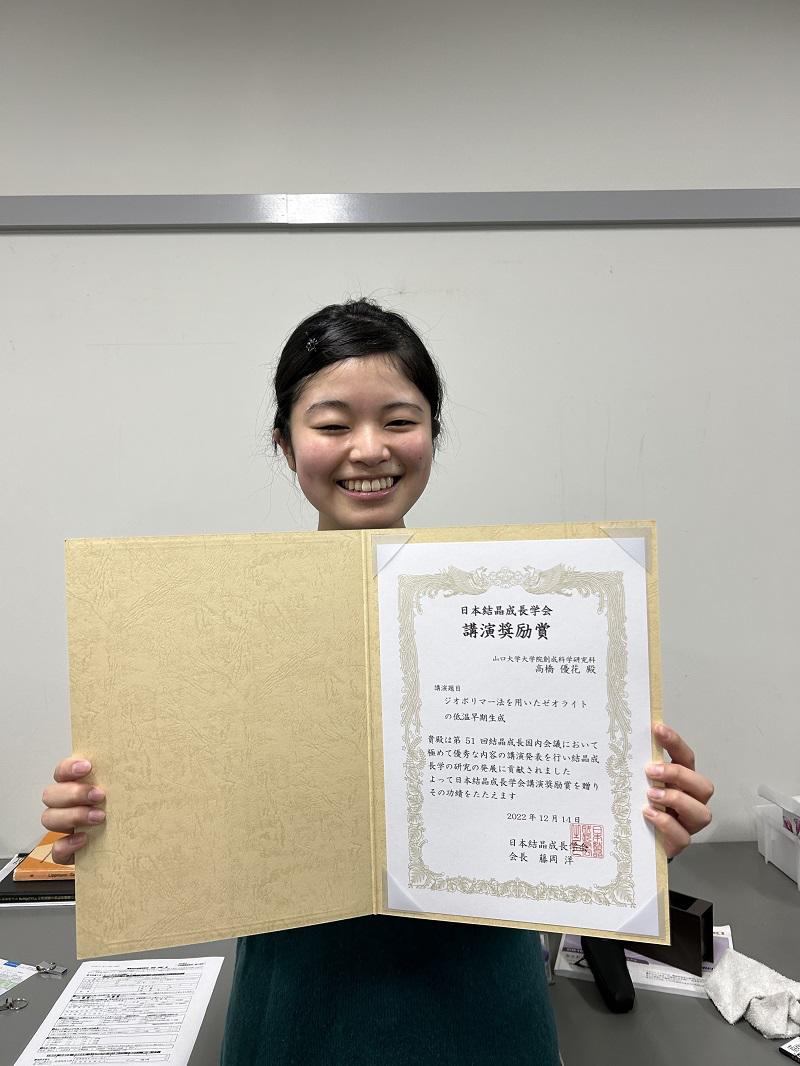 日本結晶成長学会
講演奨励賞
山口大学大学院創成科学研究科
高橋 優花 殿
講演題目
ジオポリマー法を用いたゼオライト
の低温早期生成
貴殿は第 51 回結晶成長国内会議において
極めて優秀な内容の講演発表を行い結晶成
長学の研究の発展に貢献されました
よって日本結晶成長学会講演奨励賞を贈り
その功績をたたえます
2022 年 12 月 14 日
日本結晶成長学会
会長 藤岡 洋